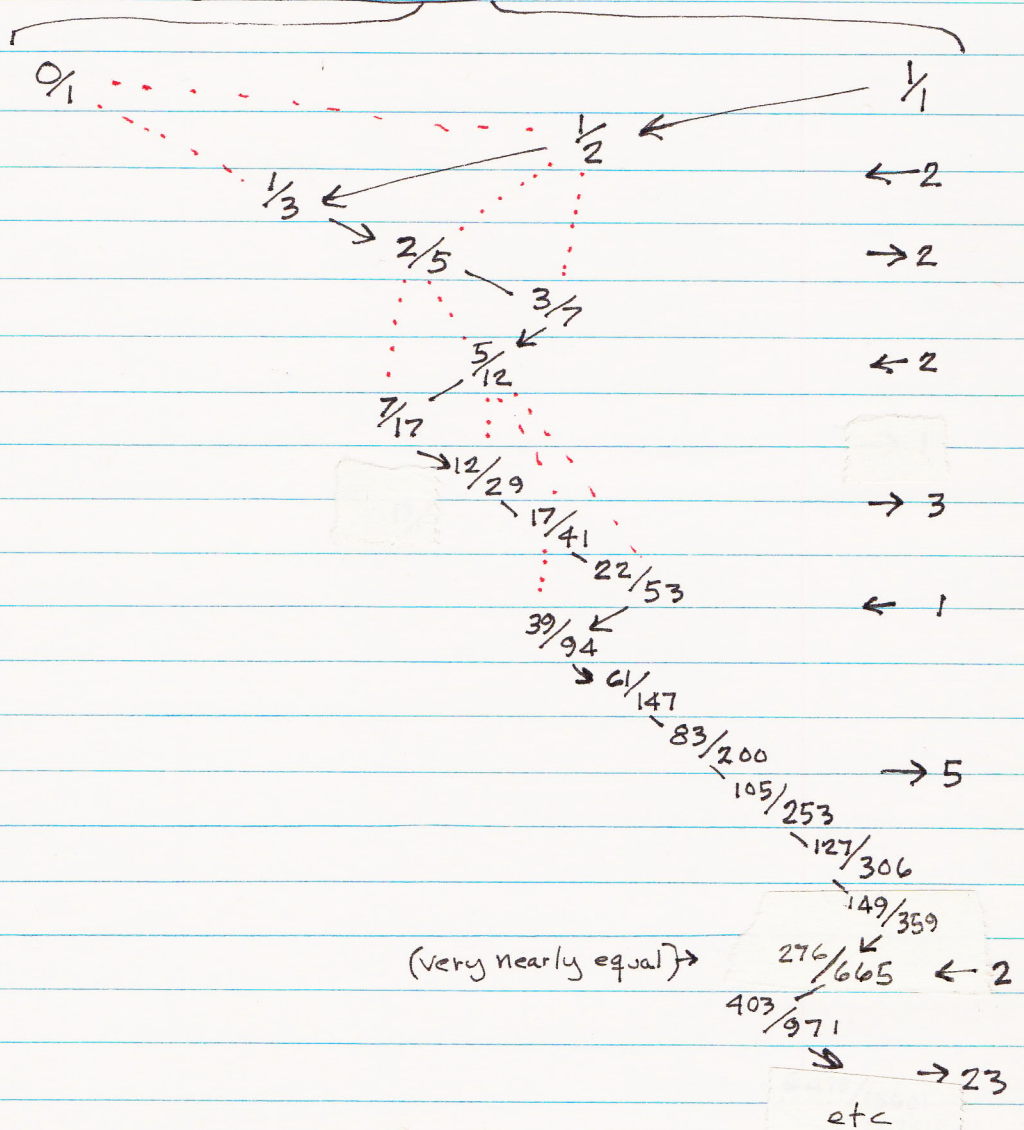 0/1 1/1
1/2
←2
1/3
2/5 →2
3/7
5/12 ←2
7/17
12/29
17/41 →3
22/53 ← 1
39/94
61/147
83/200
→5
105/253
127/306
149/359
(very nearly equal)→ 276/665 ←2
403/971
→23
etc